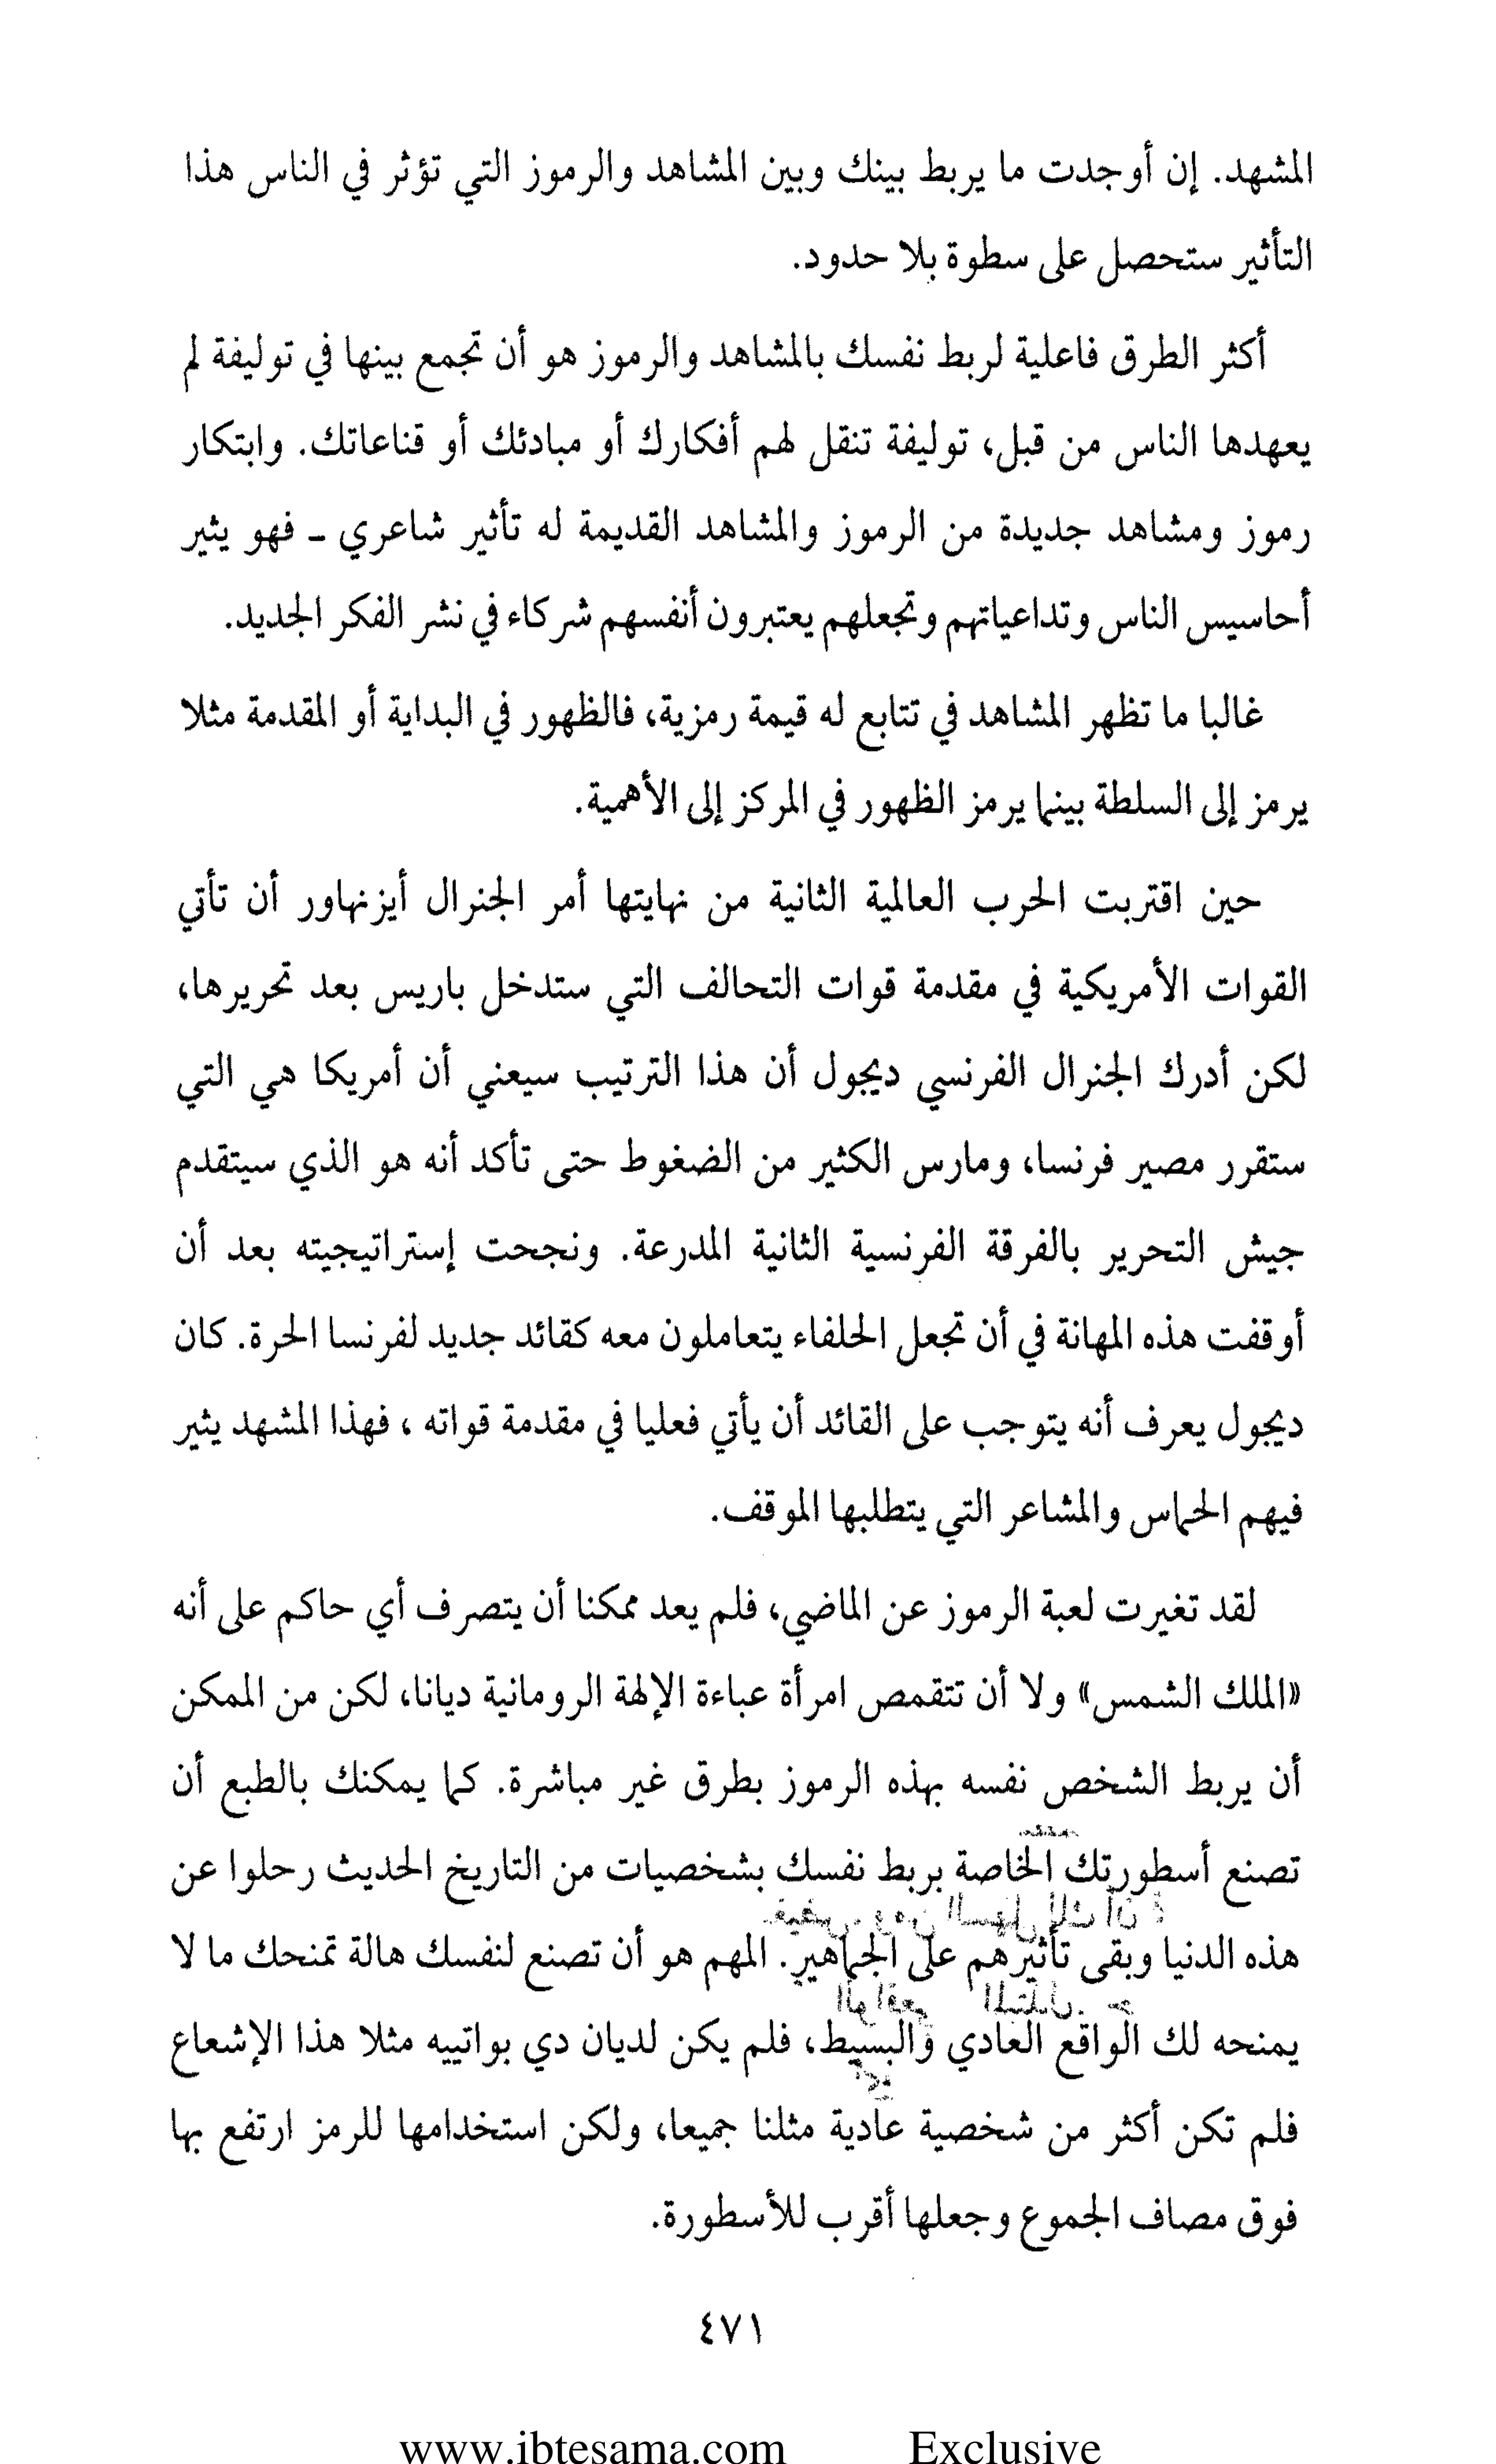 المشهد. إن أوجدت ما يربط بينك وبين المشاهد والرموز التي تؤثر في الناس هذا
التأثير ستحصل على سطوة بلا حدود.
أكثر الطرق فاعلية لربط نفسك بالمشاهد والرموز هو أن تجمع بينها في توليفة لم
يعهدها الناس من قبل، توليفة تنقل لهم أفكارك أو مبادئك أو قناعاتك. وابتكار
رموز ومشاهد جديدة من الرموز والمشاهد القديمة له تأثير شاعري - فهو يثير
أحاسيس الناس وتداعياتهم وتجعلهم يعتبرون أنفسهم شركاء في نشر الفكر الجديد.
غالبا ما تظهر المشاهد في تتابع له قيمة رمزية، فالظهور في البداية أو المقدمة مثلا
يرمز إلى السلطة بينما يرمز الظهور في المركز إلى الأهمية.
حين اقتربت الحرب العالمية الثانية من نهايتها أمر الجنرال أيزنهاور أن تأتي
القوات الأمريكية في مقدمة قوات التحالف التي ستدخل باريس بعد تحريرها،
لكن أدرك الجنرال الفرنسي ديجول أن هذا الترتيب سيعني أن أمريكا هي التي
ستقرر مصير فرنسا، ومارس الكثير من الضغوط حتى تأكد أنه هو الذي سيتقدم
جيش التحرير بالفرقة الفرنسية الثانية المدرعة. ونجحت إستراتيجيته بعد أن
أوقفت هذه المهانة في أن تجعل الحلفاء يتعاملون معه كقائد جديد لفرنسا الحرة. كان
ديجول يعرف أنه يتوجب على القائد أن يأتي فعليا في مقدمة قواته ، فهذا المشهد يثير
فيهم الحماس والمشاعر التي يتطلبها الموقف.
لقد تغيرت لعبة الرموز عن الماضي، فلم يعد ممكنا أن يتصرف أي حاكم على أنه
«الملك الشمس» ولا أن تتقمص امرأة عباءة الإلهة الرومانية ديانا، لكن من الممكن
أن يربط الشخص نفسه بهذه الرموز بطرق غير مباشرة. كما يمكنك بالطبع أن
تصنع أسطورتك الخاصة بربط نفسك بشخصيات من التاريخ الحديث رحلوا عن
هذه الدنيا وبقى تأثيرهم على الجماهير. المهم هو أن تصنع لنفسك هالة تمنحك ما لا
يمنحه لك الواقع العادي والبسيط، فلم يكن لديان دي بواتييه مثلا هذا الإشعاع
فلم تكن أكثر من شخصية عادية مثلنا جميعا، ولكن استخدامها للرمز ارتفع بها
فوق مصاف الجموع وجعلها أقرب للأسطورة.
٤٧١
www.ibtesama.com Exclusive